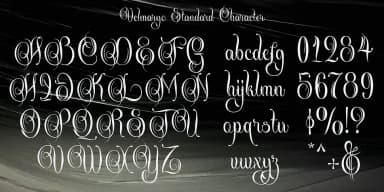 Velmargo Standard Character
ABCDEFG
HIJKLMN
OPQRSTU
VWXYZ
abcdefg
hijklmn
opqrstu
vwxyz
01234
56789
!%!?
"^ ÷&